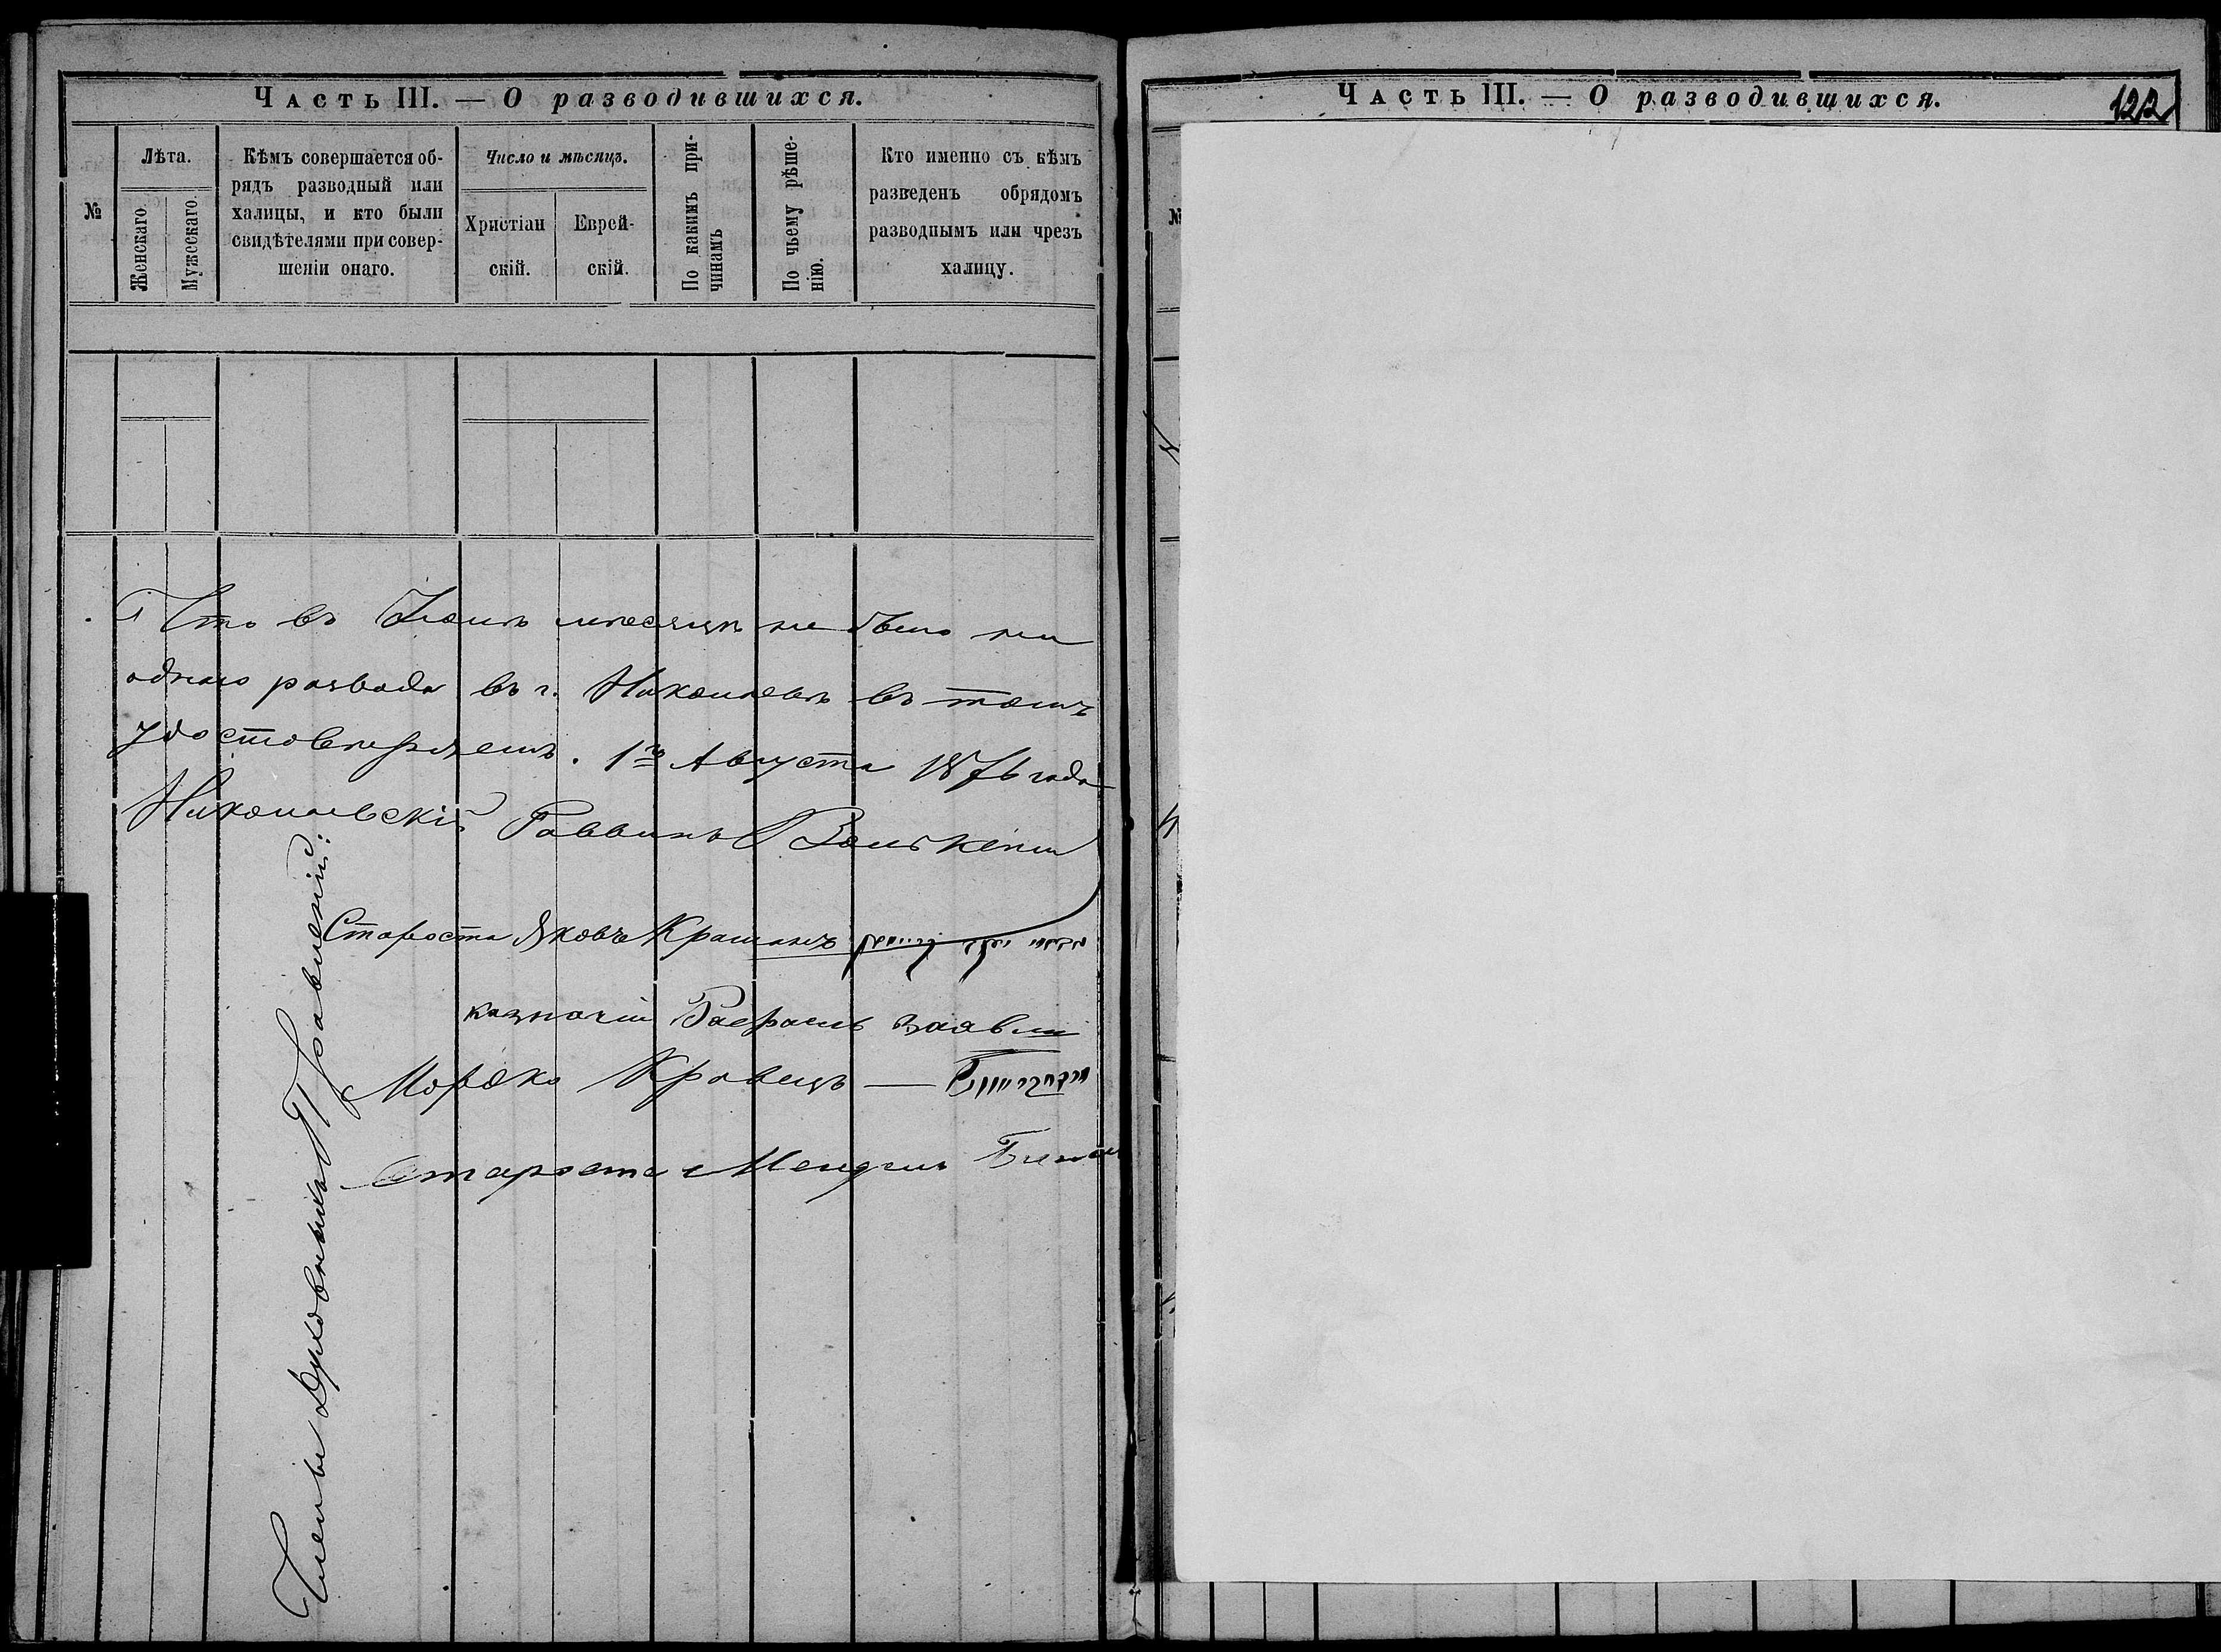 Часть III. — О разводившихся.
№
Лѣта.
Женскаго.
Мужескаго.
Кѣмъ совершается об-
рядъ разводный или
халицы, и кто были
свидѣтелями при совер-
шеніи онаго.
Число и мѣсяцъ.
Христіан
скій.
Еврей-
скій.
По какимъ при-
чинамъ
По чьему рѣше-
нію.
Кто именно съ кѣмъ
разведенъ обрядомъ
разводнымъ или чрезъ
халицу.
Что въ мѣсяцѣ не было ни
одного развода въ г. Николаевѣ въ томъ
удостовѣряемъ. 1го Августа 1876 года
Николаевскій Раввинъ
Члены Духовныхъ Правленій:
Староста Яковъ
казначій
Мордко Кравецъ —
Староста Мендель
Часть III. — О разводившихся.
122
№